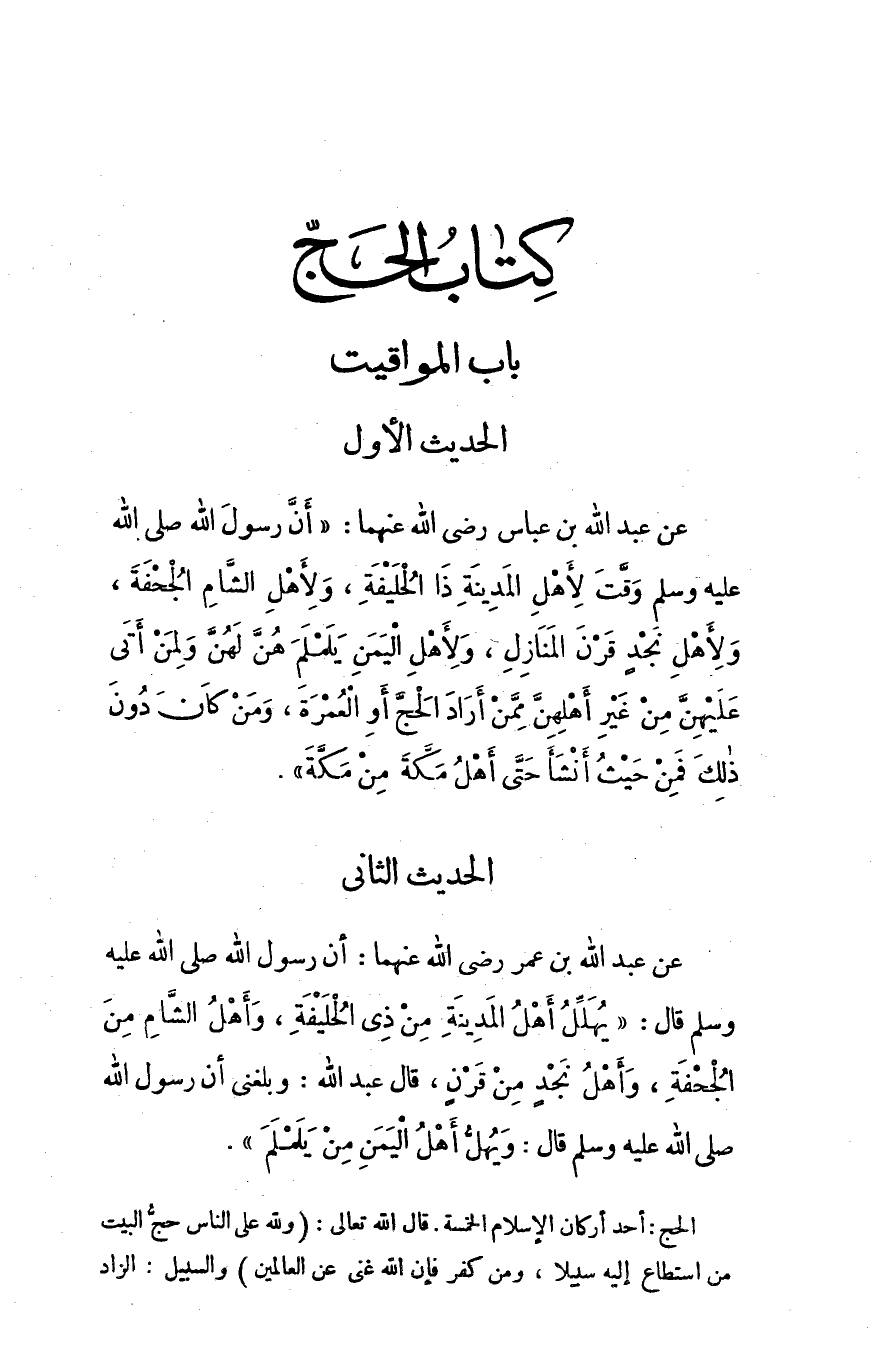 كِتَابُ الحَجّ
باب المواقيت
الحديث الأول
عن عبد الله بن عباس رضى الله عنهما : « أَنَّ رسولَ الله صلى الله
عليه وسلم وَقَّتَ لِأَهْلِ المَدِينَةِ ذَا الْخَلِيْفَةِ ، وَلِأَهْلِ الشَّامِ الْجُحْفَةَ ،
وَلِأَهْلِ نَجْدٍ قَرْنَ المَنَازِلِ ، وَلِأَهْلِ الْيَمَنِ يَلَمْلَمَ هُنَّ لَهُنَّ وَلِمَنْ أَتَى
عَلَيْهِنَّ مِنْ غَيْرِ أَهْلِهِنَّ مِمَّنْ أَرَادَ الْحَجَّ أَوِ الْعُمْرَةَ ، وَمَنْ كَانَ دُونَ
ذٰلِكَ فَمِنْ حَيْثُ أَنْشَأَ حَتَّى أَهْلُ مَكَّةَ مِنْ مَكَّةَ» .
الحديث الثانى
عن عبد الله بن عمر رضى الله عنهما : أن رسول الله صلى الله عليه
وسلم قال : « يُهَلِّلُ أَهْلُ المَدِينَةِ مِنْ ذِى الْخَلِيْفَةِ ، وَأَهْلُ الشَّامِ مِنَ
الْجُحْفَةِ ، وَأَهْلُ نَجْدٍ مِنْ قَرْنٍ ، قال عبد الله : وبلغنى أن رسول الله
صلى الله عليه وسلم قال : وَيُهِلُّ أَهْلُ الْيَمَنِ مِنْ يَلَمْلَمَ » .
الحج : أحد أركان الإسلام الخمسة . قال الله تعالى : ( ولله على الناس حجُّ البيت
من استطاع إليه سبيلا ، ومن كفر فإن الله غنى عن العالمين ) والسبيل : الزاد